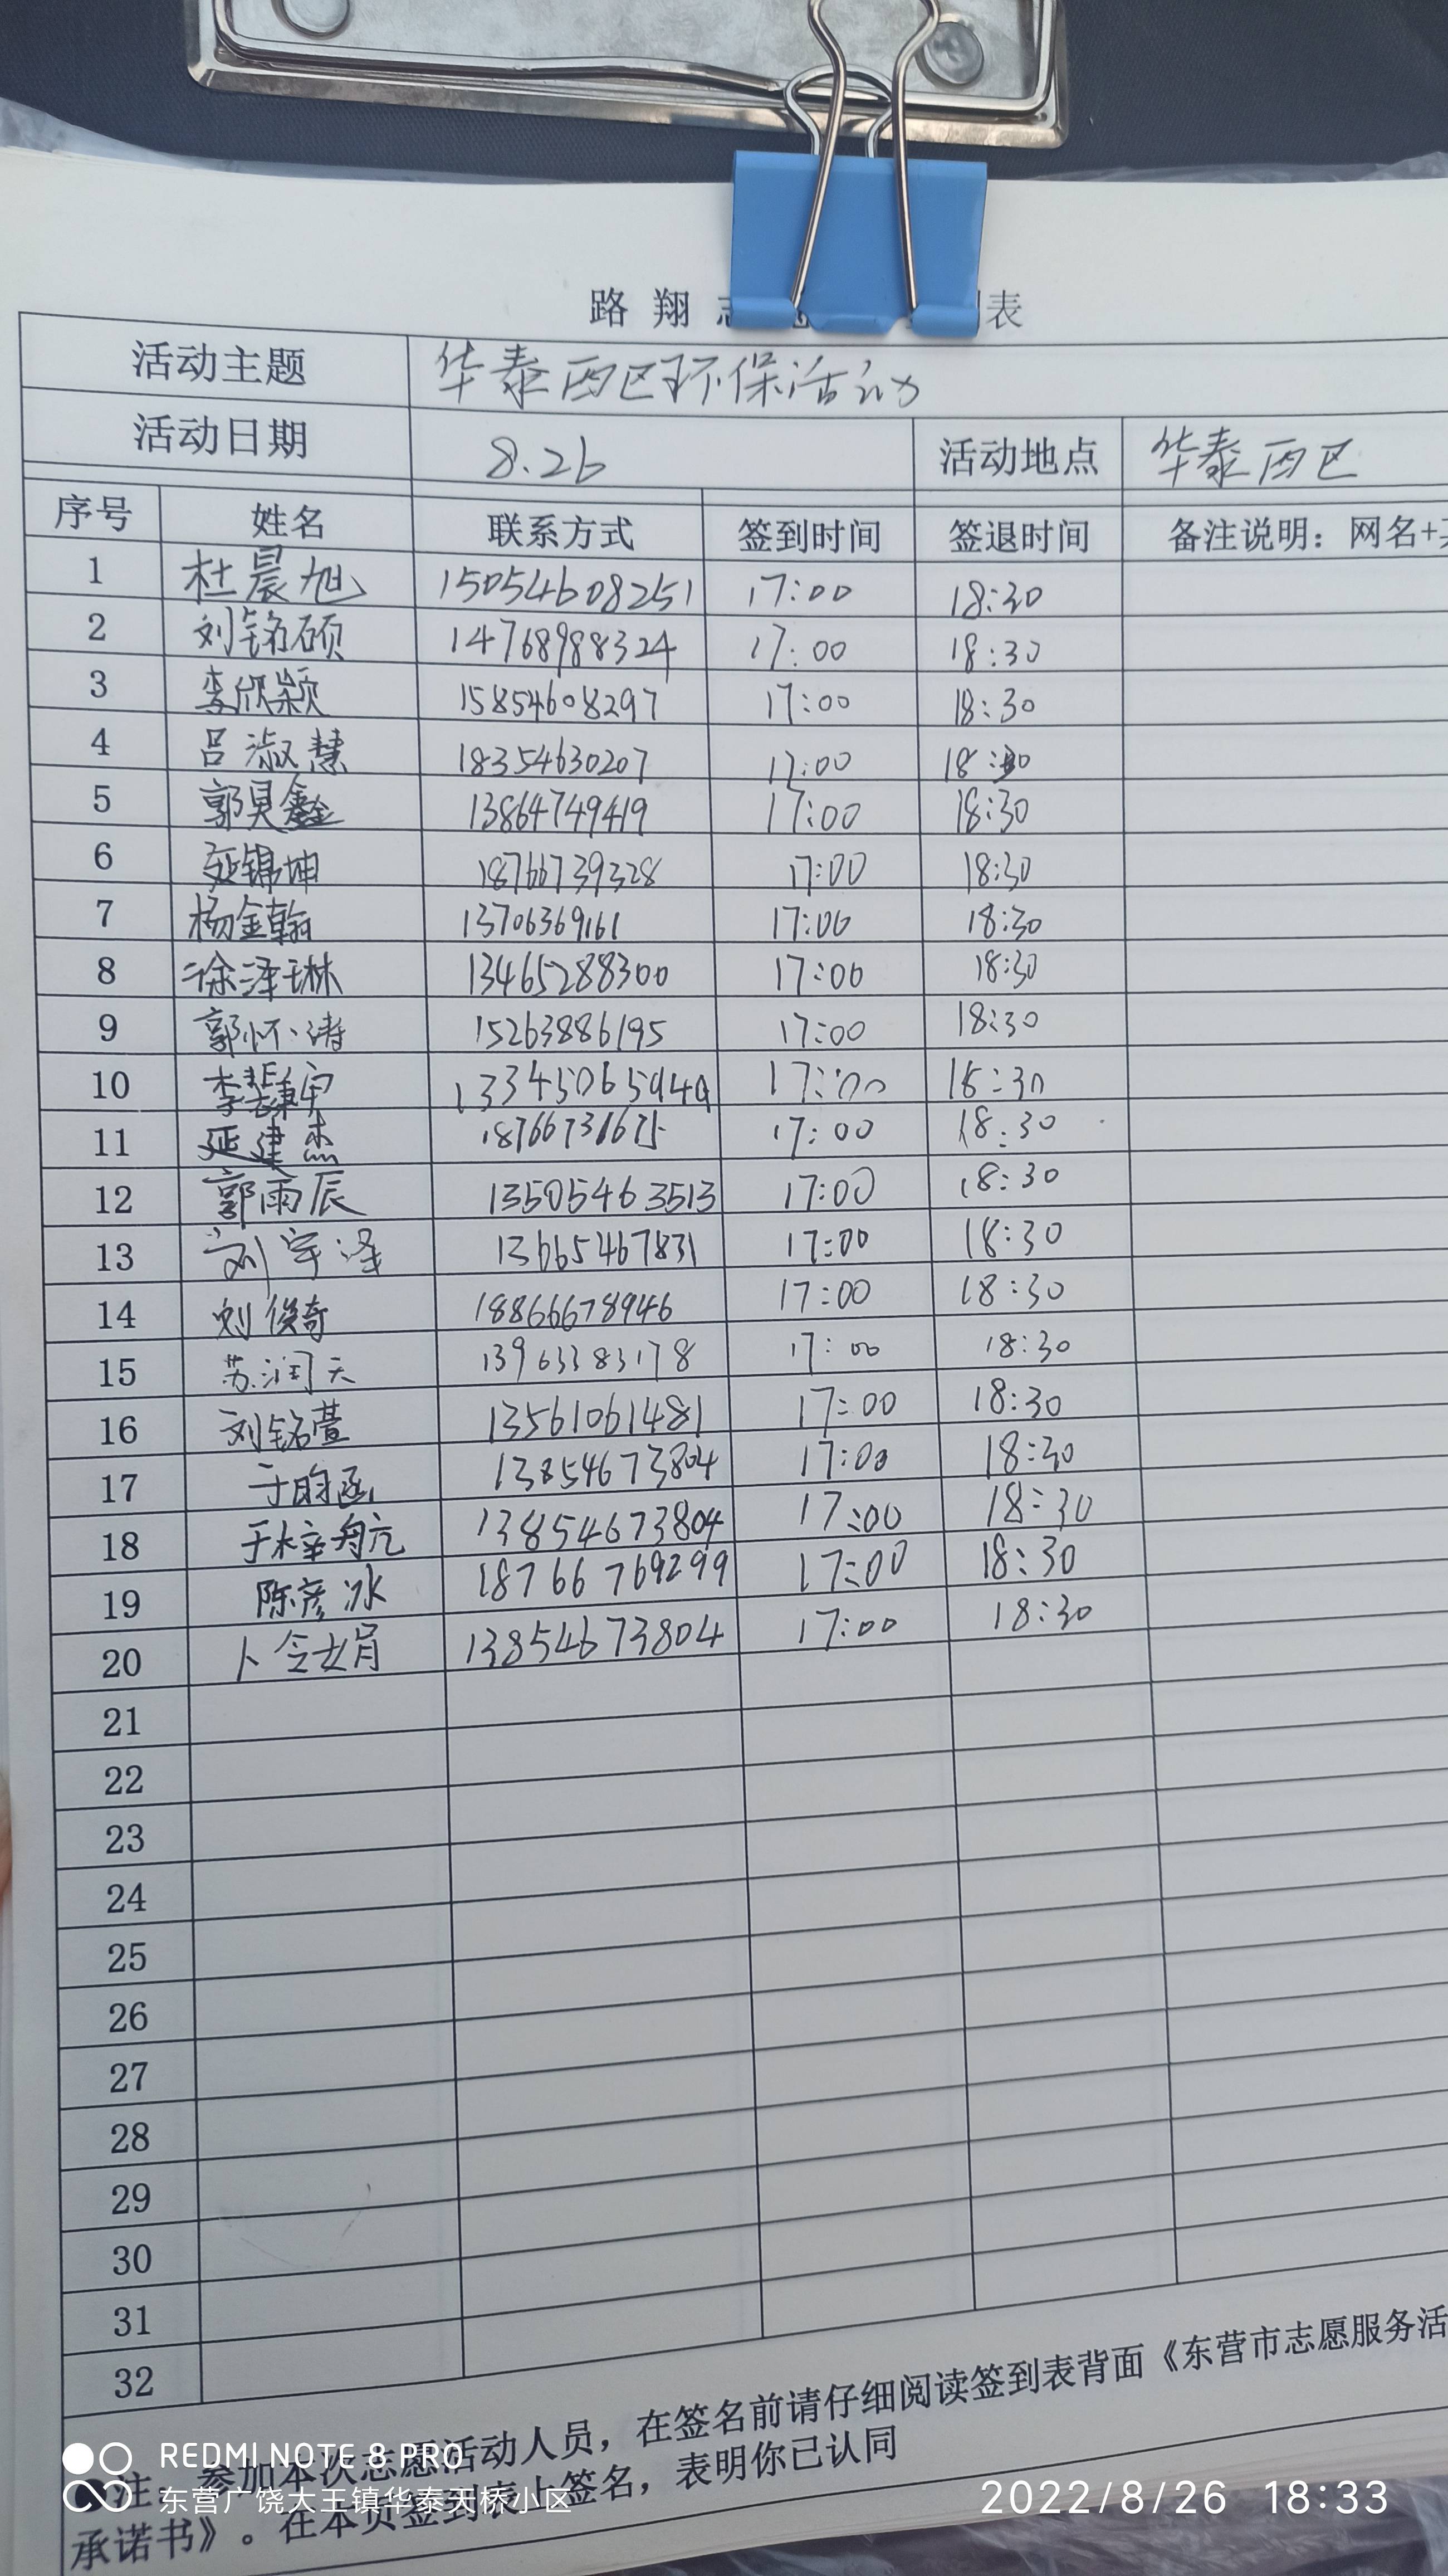 路 翔 志 表
活动主题 华泰西区环保活动
活动日期 8.26 活动地点 华泰西区
序号 姓名 联系方式 签到时间 签退时间 备注说明：网名+
1 杜晨旭 15054608251 17:00 18:30
2 刘铭硕 14768988324 17:00 18:30
3 李欣颖 15854608297 17:00 18:30
4 吕淑慧 18354630207 17:00 18:30
5 郭昊鑫 13864749419 17:00 18:30
6 延锦坤 18766739328 17:00 18:30
7 杨金翰 13706369161 17:00 18:30
8 徐泽琳 13465288300 17:00 18:30
9 郭怀涛 15263886195 17:00 18:30
10 李 17:00 18:30
11 延建杰 18766731675 17:00 18:30
12 郭雨辰 13505463513 17:00 18:30
13 刘宇泽 13665467831 17:00 18:30
14 刘俊奇 18866678946 17:00 18:30
15 苏润天 13963383178 17:00 18:30
16 刘铭萱 13561061481 17:00 18:30
17 于昀函 13854673804 17:00 18:30
18 于梓航 13854673804 17:00 18:30
19 陈彦冰 18766769299 17:00 18:30
20 卜令娟 13854673804 17:00 18:30
21
22
23
24
25
26
27
28
29
30
31
32
注：参加本次志愿活动人员，在签名前请仔细阅读签到表背面《东营市志愿服务活
承诺书》。在本页签到表上签名，表明你已认同
REDMI NOTE 8 PRO
东营广饶大王镇华泰天桥小区
2022/8/26 18:33